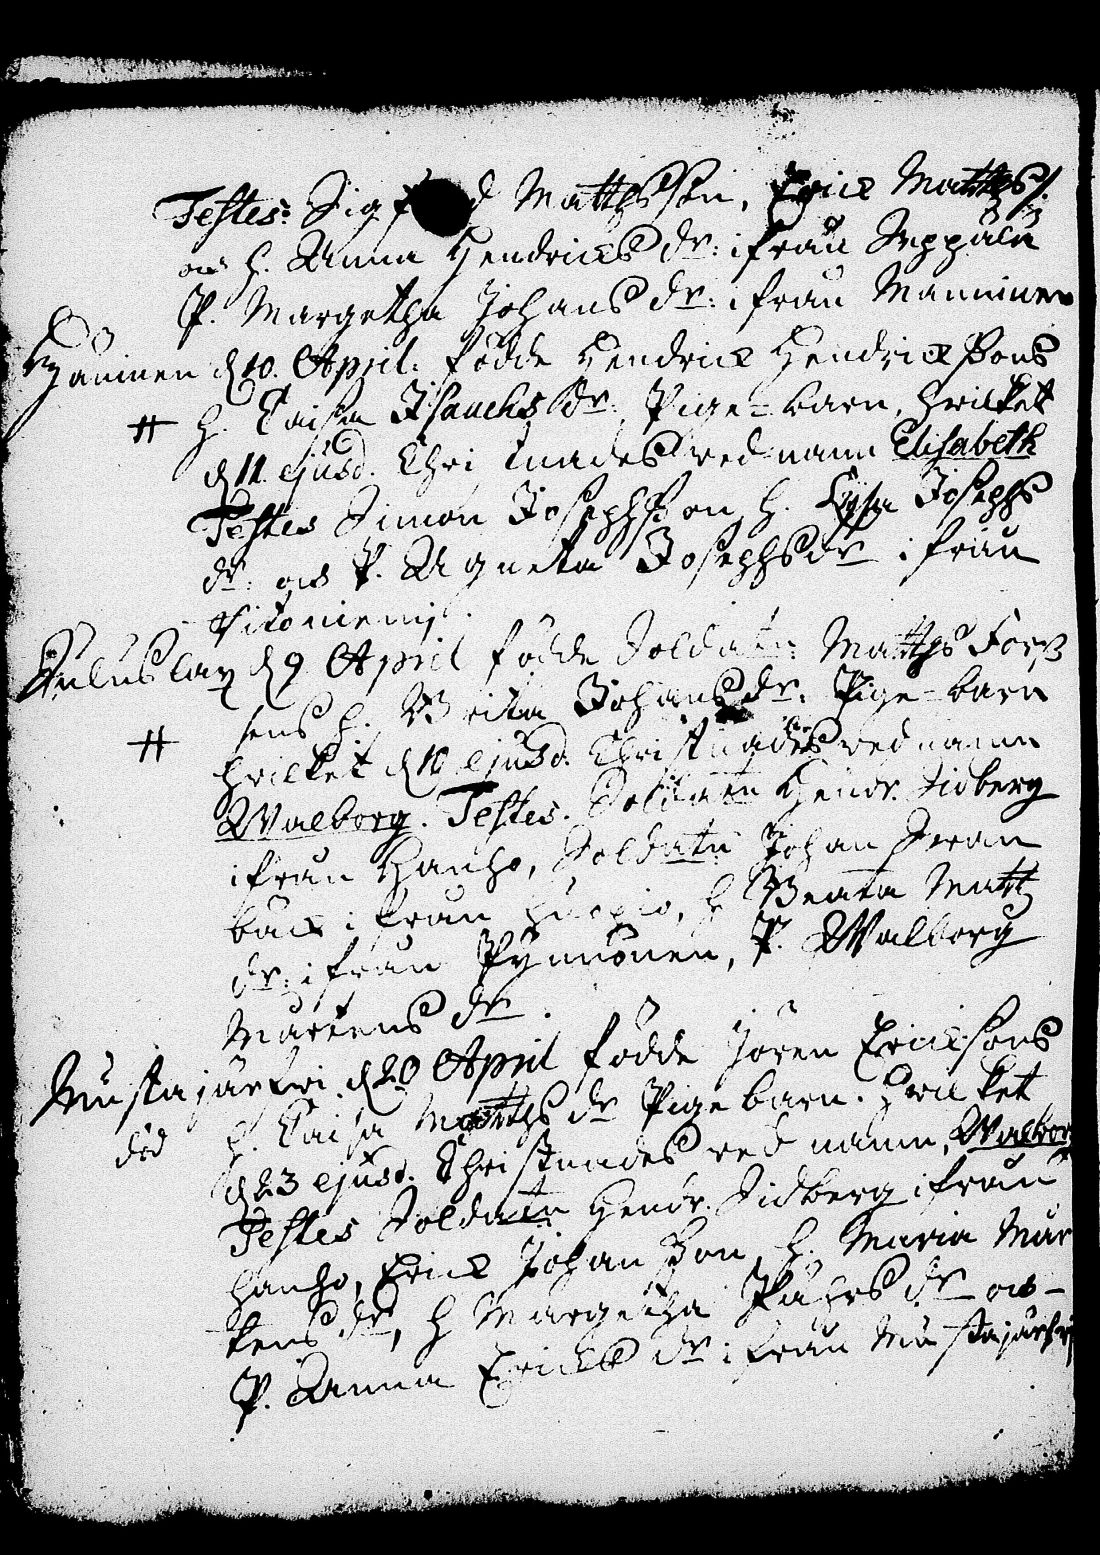 Testes: Sigf d Mattsson, Erick Matts
och h. Anna Hendricksdr: ifrån Seppälä
P. Margetha Johansdr: ifrån Manninen
Hyäninen d 10. April: födde Hendrick Hendrickssons
# h. Caisa Isaachsdr: Pige-barn, hvilket
d 11 ejusd. Christnades ved namn Elisabeth
Testes Simon Josephsson, h. Lisa Josephs
dr: och P. Agneta Josephsdr ifrån
d 9 April födde Soldatn: Matths Forss
sens h. Brita Johansdr. Pige-barn
# hvilket d 10 ejusd. Christnades ved namn
Walborg. Testes. Soldatn Hendr. Sidberg
ifrån Hauho, Soldatn Johan
back ifrån, h Beata Matts
dr: ifrån Pynnönen, P. Walborg
Mårtens dr.
Mustajärfvi d 20 April födde Jören Ericksons
död h. Caisa Matthsdr Pigebarn. Hvilket
d 23 ejusd. Christnades ved namn, Walborg
Testes Soldatn Hendr. Sidberg ifrån
Hauho, Erick Johansson, h. Maria Mår
tensdr, h Margetha Påhlsdr och
P. Anna Ericksdr: ifrån Mustajärfvi